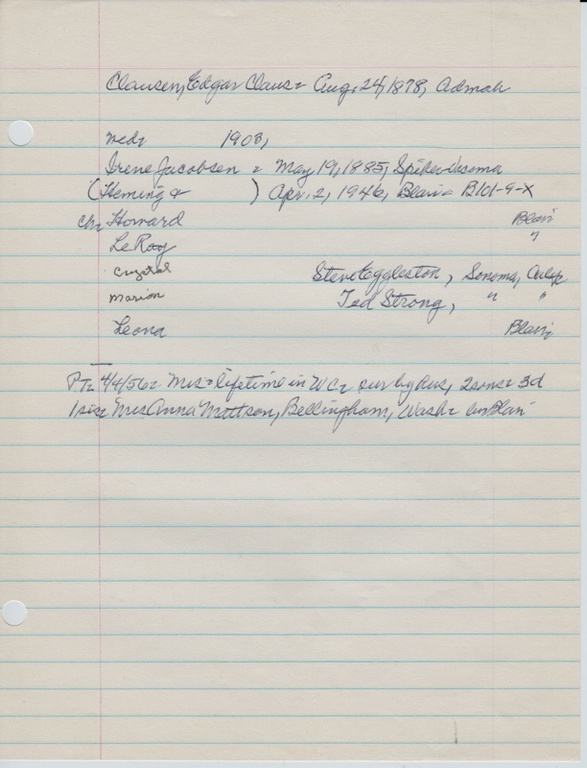 Clausen, Edgar Claus = Aug. 24, 1878, Admah
wed= 1903,
Irene Jacobsen = May 19, 1885, Spiker=
(Fleming & ) Apr. 2, 1946, Blair= B101-9-X
ch= Howard Blair
LeRoy "
Crystal Steve Eggleston, Sonoma, Calif
Marion Ted Strong, " "
Leona Blair
PT= 4/4/56= Mrs = lifetime in WC= sur by hus, 2 sons = 3d
1 sis= Mrs Anna Mattson, Bellingham, Wash= Blair